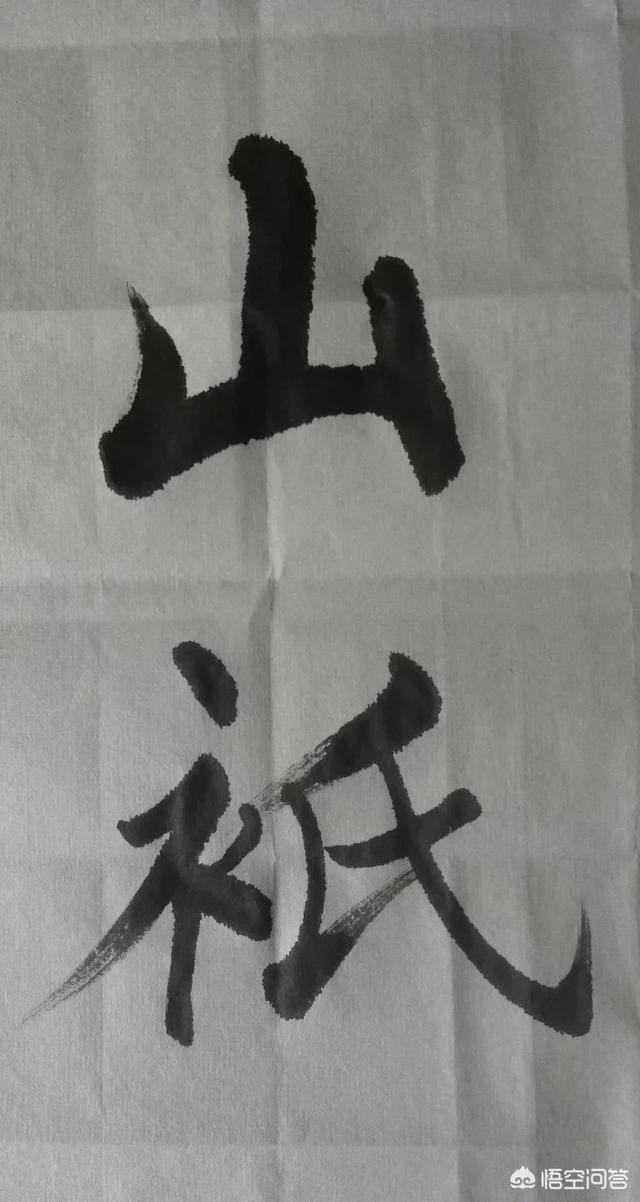 山衹
悟空问答